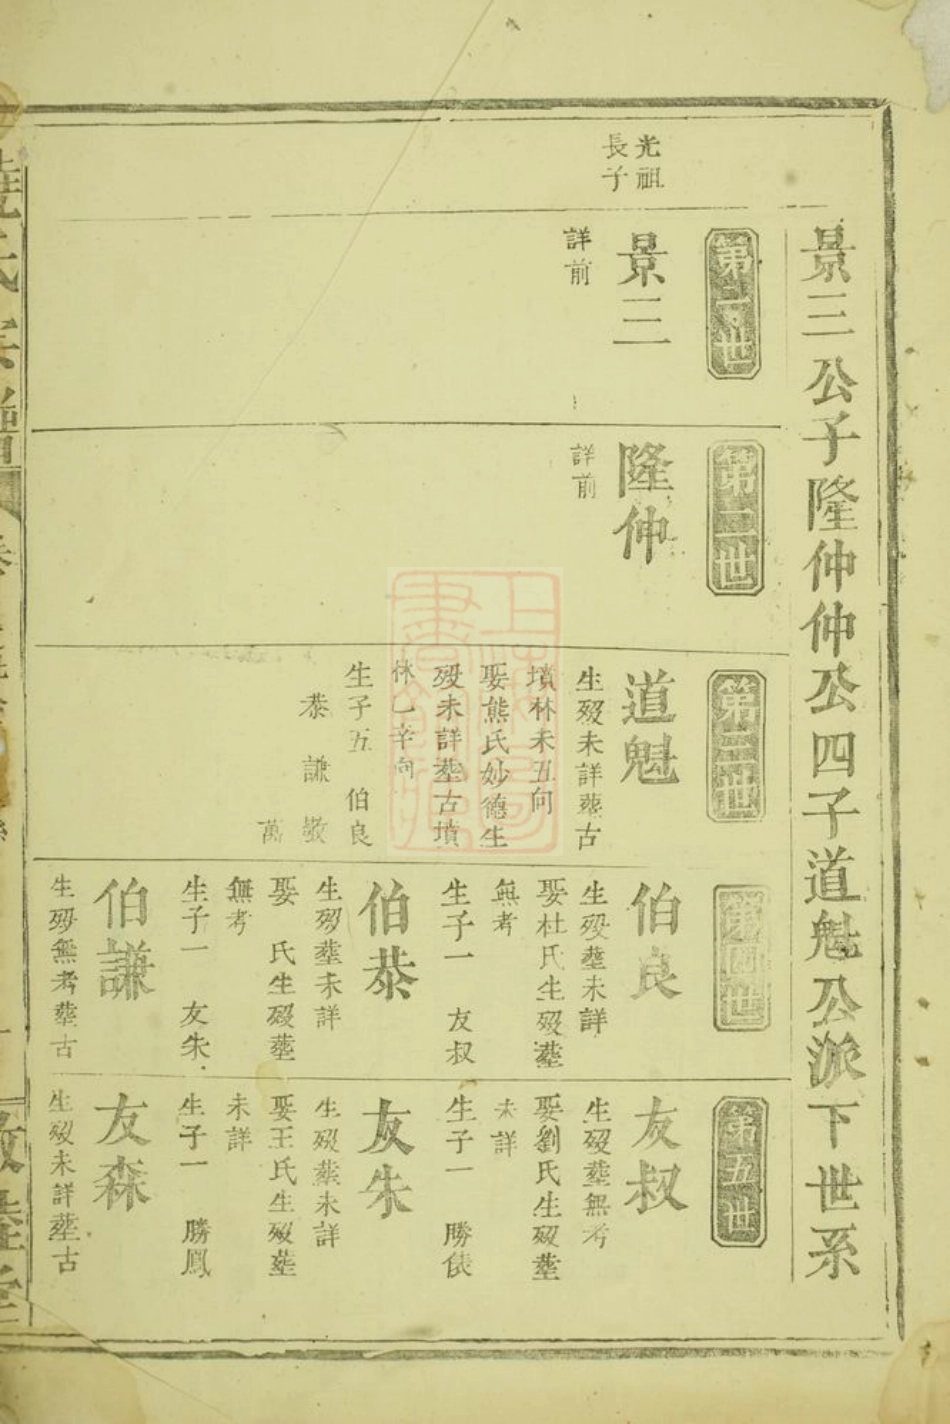 景三公子隆仲仲公四子道魁公派下世系
光祖
長子
第一世
景三
詳前
第二世
隆仲
詳前
第三世
道魁
生歿未詳葬古
墳林未丑向
娶熊氏妙德生
歿未詳塟古墳
林乙辛向
生子五 伯良
恭 謙 敬
萬
第四世
伯良
生歿塟未詳
娶杜氏生歿塟
無考
生子一 友叔
伯恭
生歿塟未詳
娶 氏生歿塟
無考
生子一 友朱
伯謙
生歿無考塟古
第五世
友叔
生歿塟無考
娶劉氏生歿塟
未詳
生子一 勝俵
友朱
生歿葬未詳
娶王氏生歿塟
未詳
生子一 勝鳳
友森
生歿未詳塟古